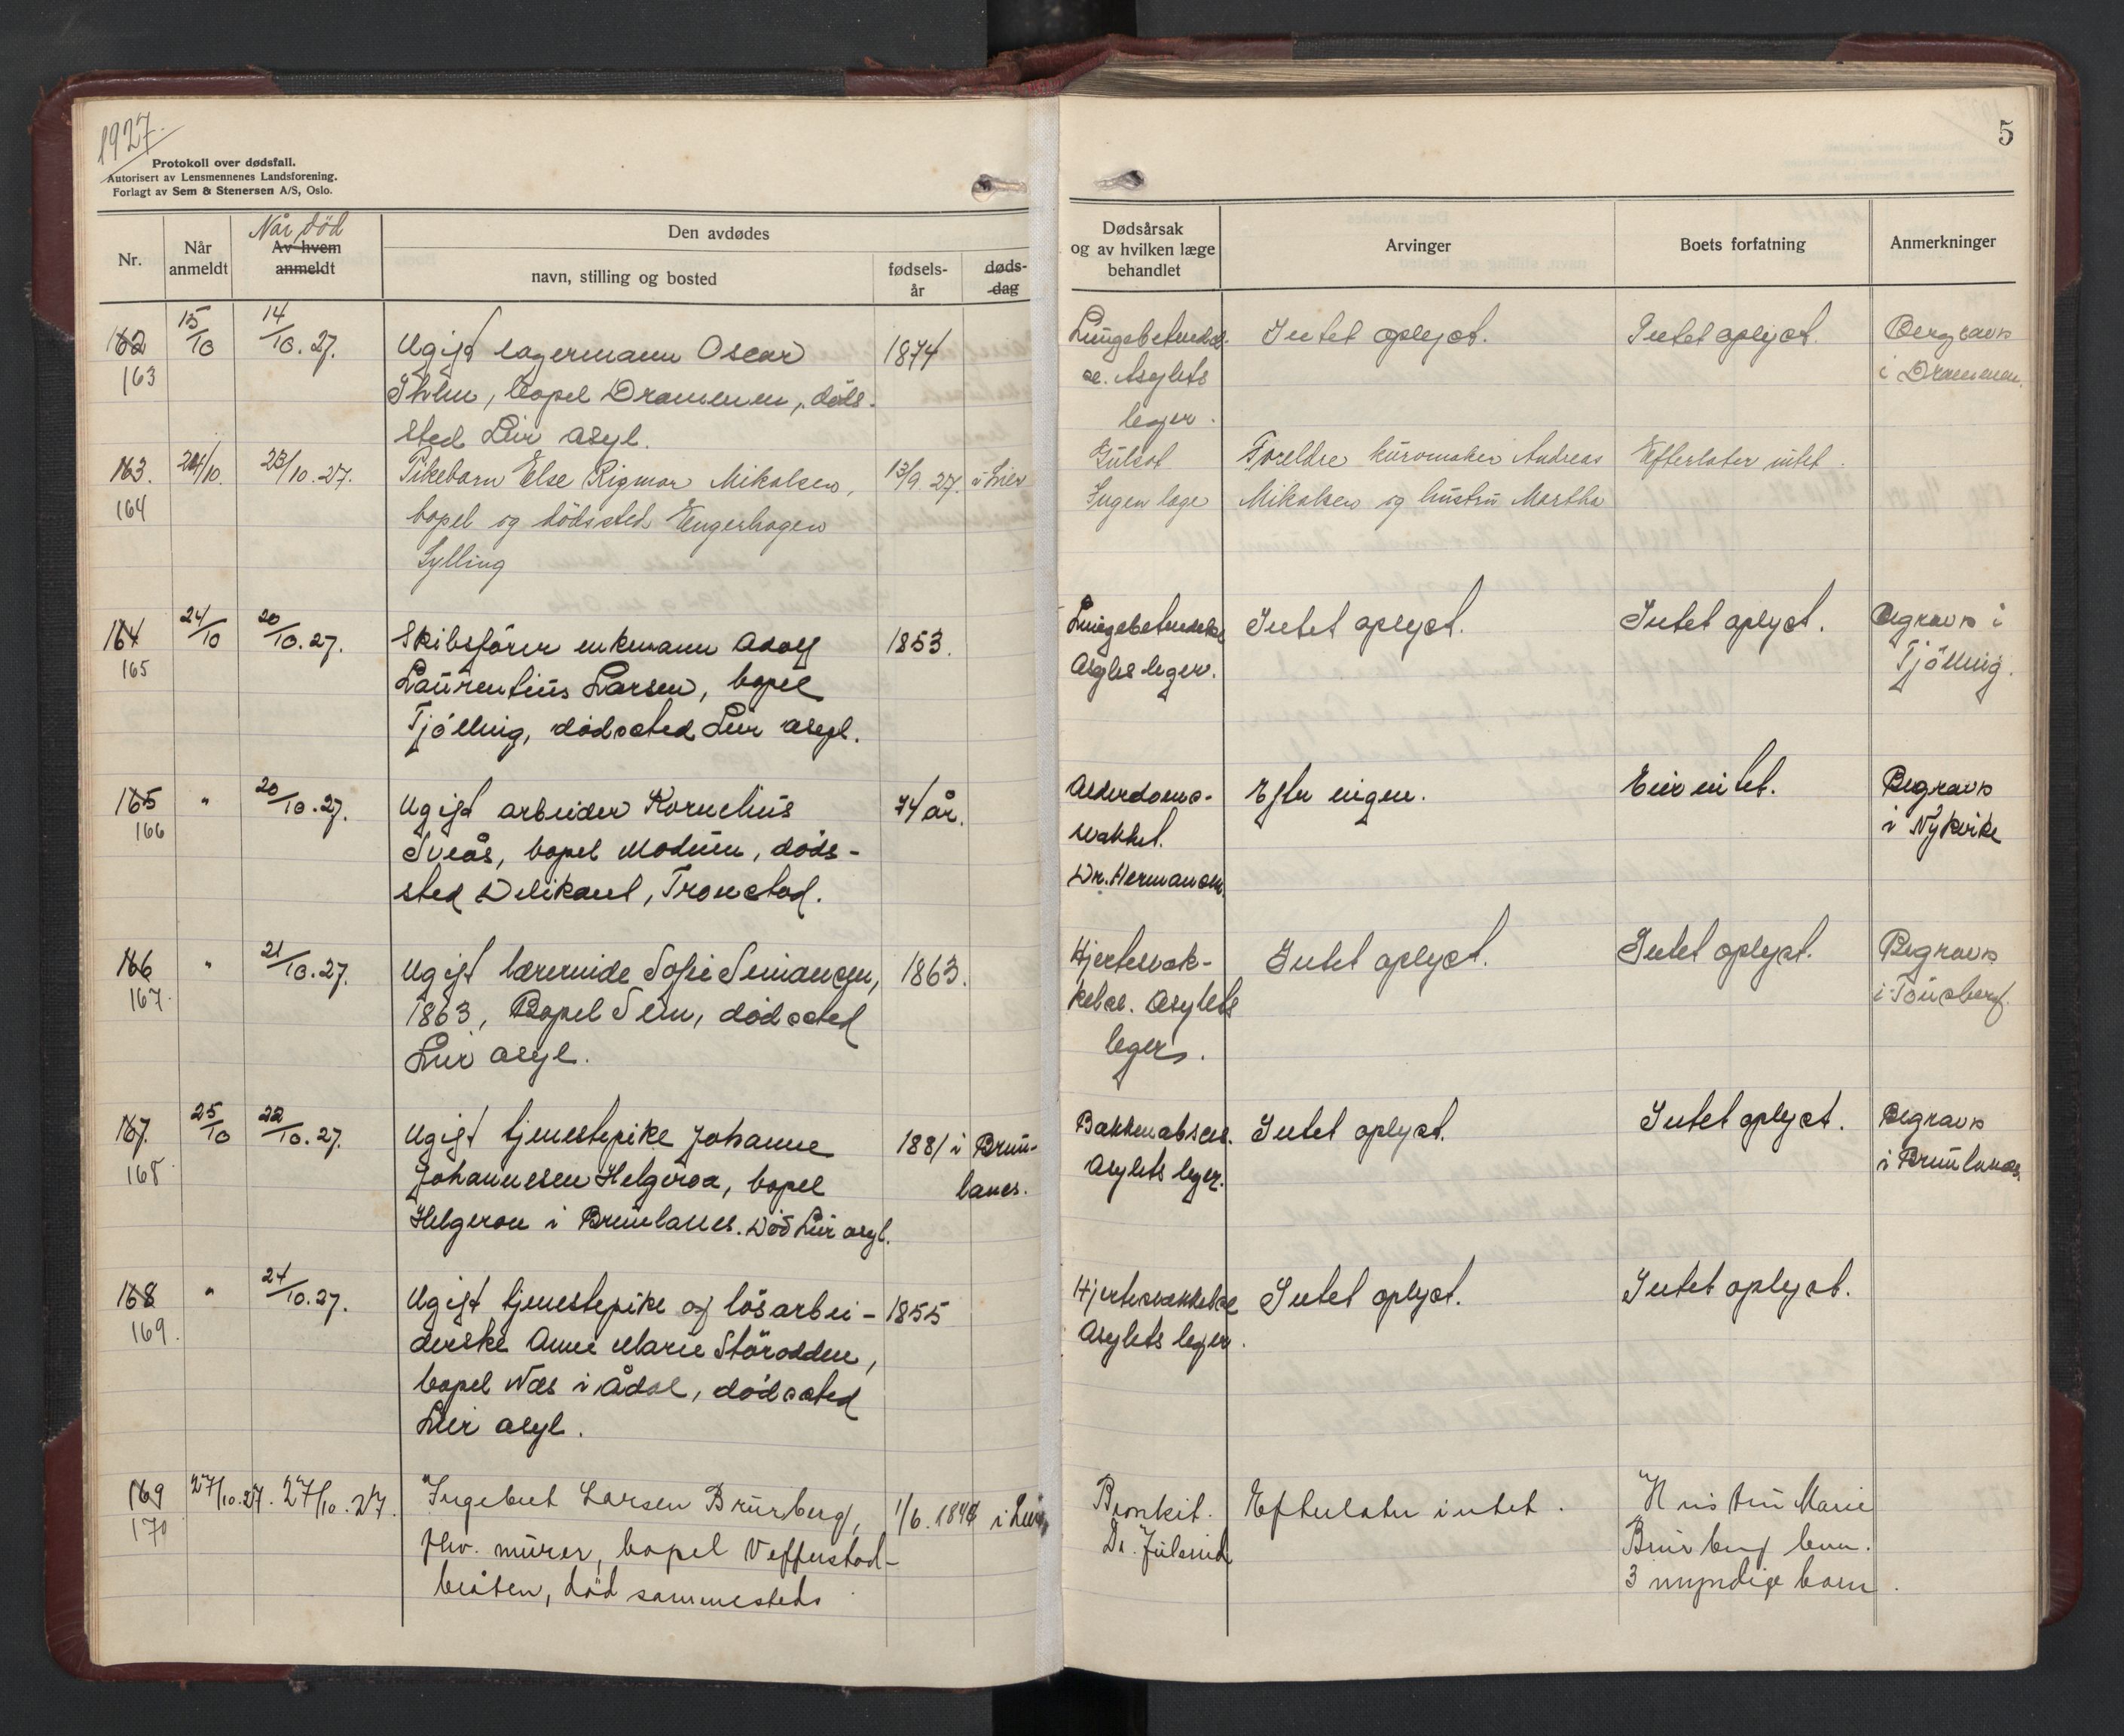 1927.
Protokoll over dødsfall.
Autorisert av Lensmennenes Landsforening.
Forlagt av Sem & Stenersen A/S, Oslo.
5
Nr.
Når anmeldt
Når död
Av hvem anmeldt
Den avdødes
navn, stilling og bosted
fødsels-år
døds-dag
Dødsårsak og av hvilken læge behandlet
Arvinger
Boets forfatning
Anmerkninger
162 15/10 14/10.27. Ugift lagermann Oscar 1874 Intet oplyst. Intet oplyst.
163 bopel Drammen, döds- Asylets i Drammen.
sted Lier asyl. leger.
163. 24/10. 23/10.27. Pikebarn Else Rigmor Mikalsen, 13/9 27. i Lier Gulsot Foreldre kurvmaker Andreas Efterlater intet.
164 bopel og dödssted Engerhagen Ingen læge Mikalsen og hustru Martha
Sylling
164 24/10 20/10.27. Skibsförer enkemann Adolf 1853. Intet oplyst. Intet oplyst. Begraves i
165 Laurentius Larsen, bopel leger. Tjölling.
Tjölling, dödssted Lier asyl.
165 " 20/10.27. Ugift arbeider Kornelius 74 år. Alderdoms- Efter ingen. Eier intet. Begraves
166 Sveås, bopel Modum, döds- i Nykirke
sted Delikant, Tronstad. Dr. Hermansen.
166 " 21/10.27. Ugift lærerinde Sofie Simansen, 1863. Intet oplyst. Intet oplyst. Begraves
167. 1863, Bopel Sem, dödssted Asylets i Tönsberg.
Lier asyl. leger.
167. 25/10 22/10.27. Ugift tjenestepike Johanne 1881 i Brun- Intet oplyst. Intet oplyst. Begraves
168. Johannesen Helgeroa, bopel lanes. Asylets leger. i Brunlanes.
Helgeroa i Brunlanes. Död Lier asyl.
168 " 24/10.27. Ugift tjenestepike og lösarbei- 1855 Hjertesvækkelse Intet oplyst. Intet oplyst.
169. derske Anne Marie Störodden, Asylets leger.
bopel Næs i Ådal, dödssted
Lier asyl.
169 27/10.27. 27/10.27. Ingebret Larsen Brurberg, i Lier Bronkit. Efterlater intet. Hustru Marie
170 fhv. murer, bopel Dr. Julsrud Brurberg
död sammesteds 3 myndige barn.